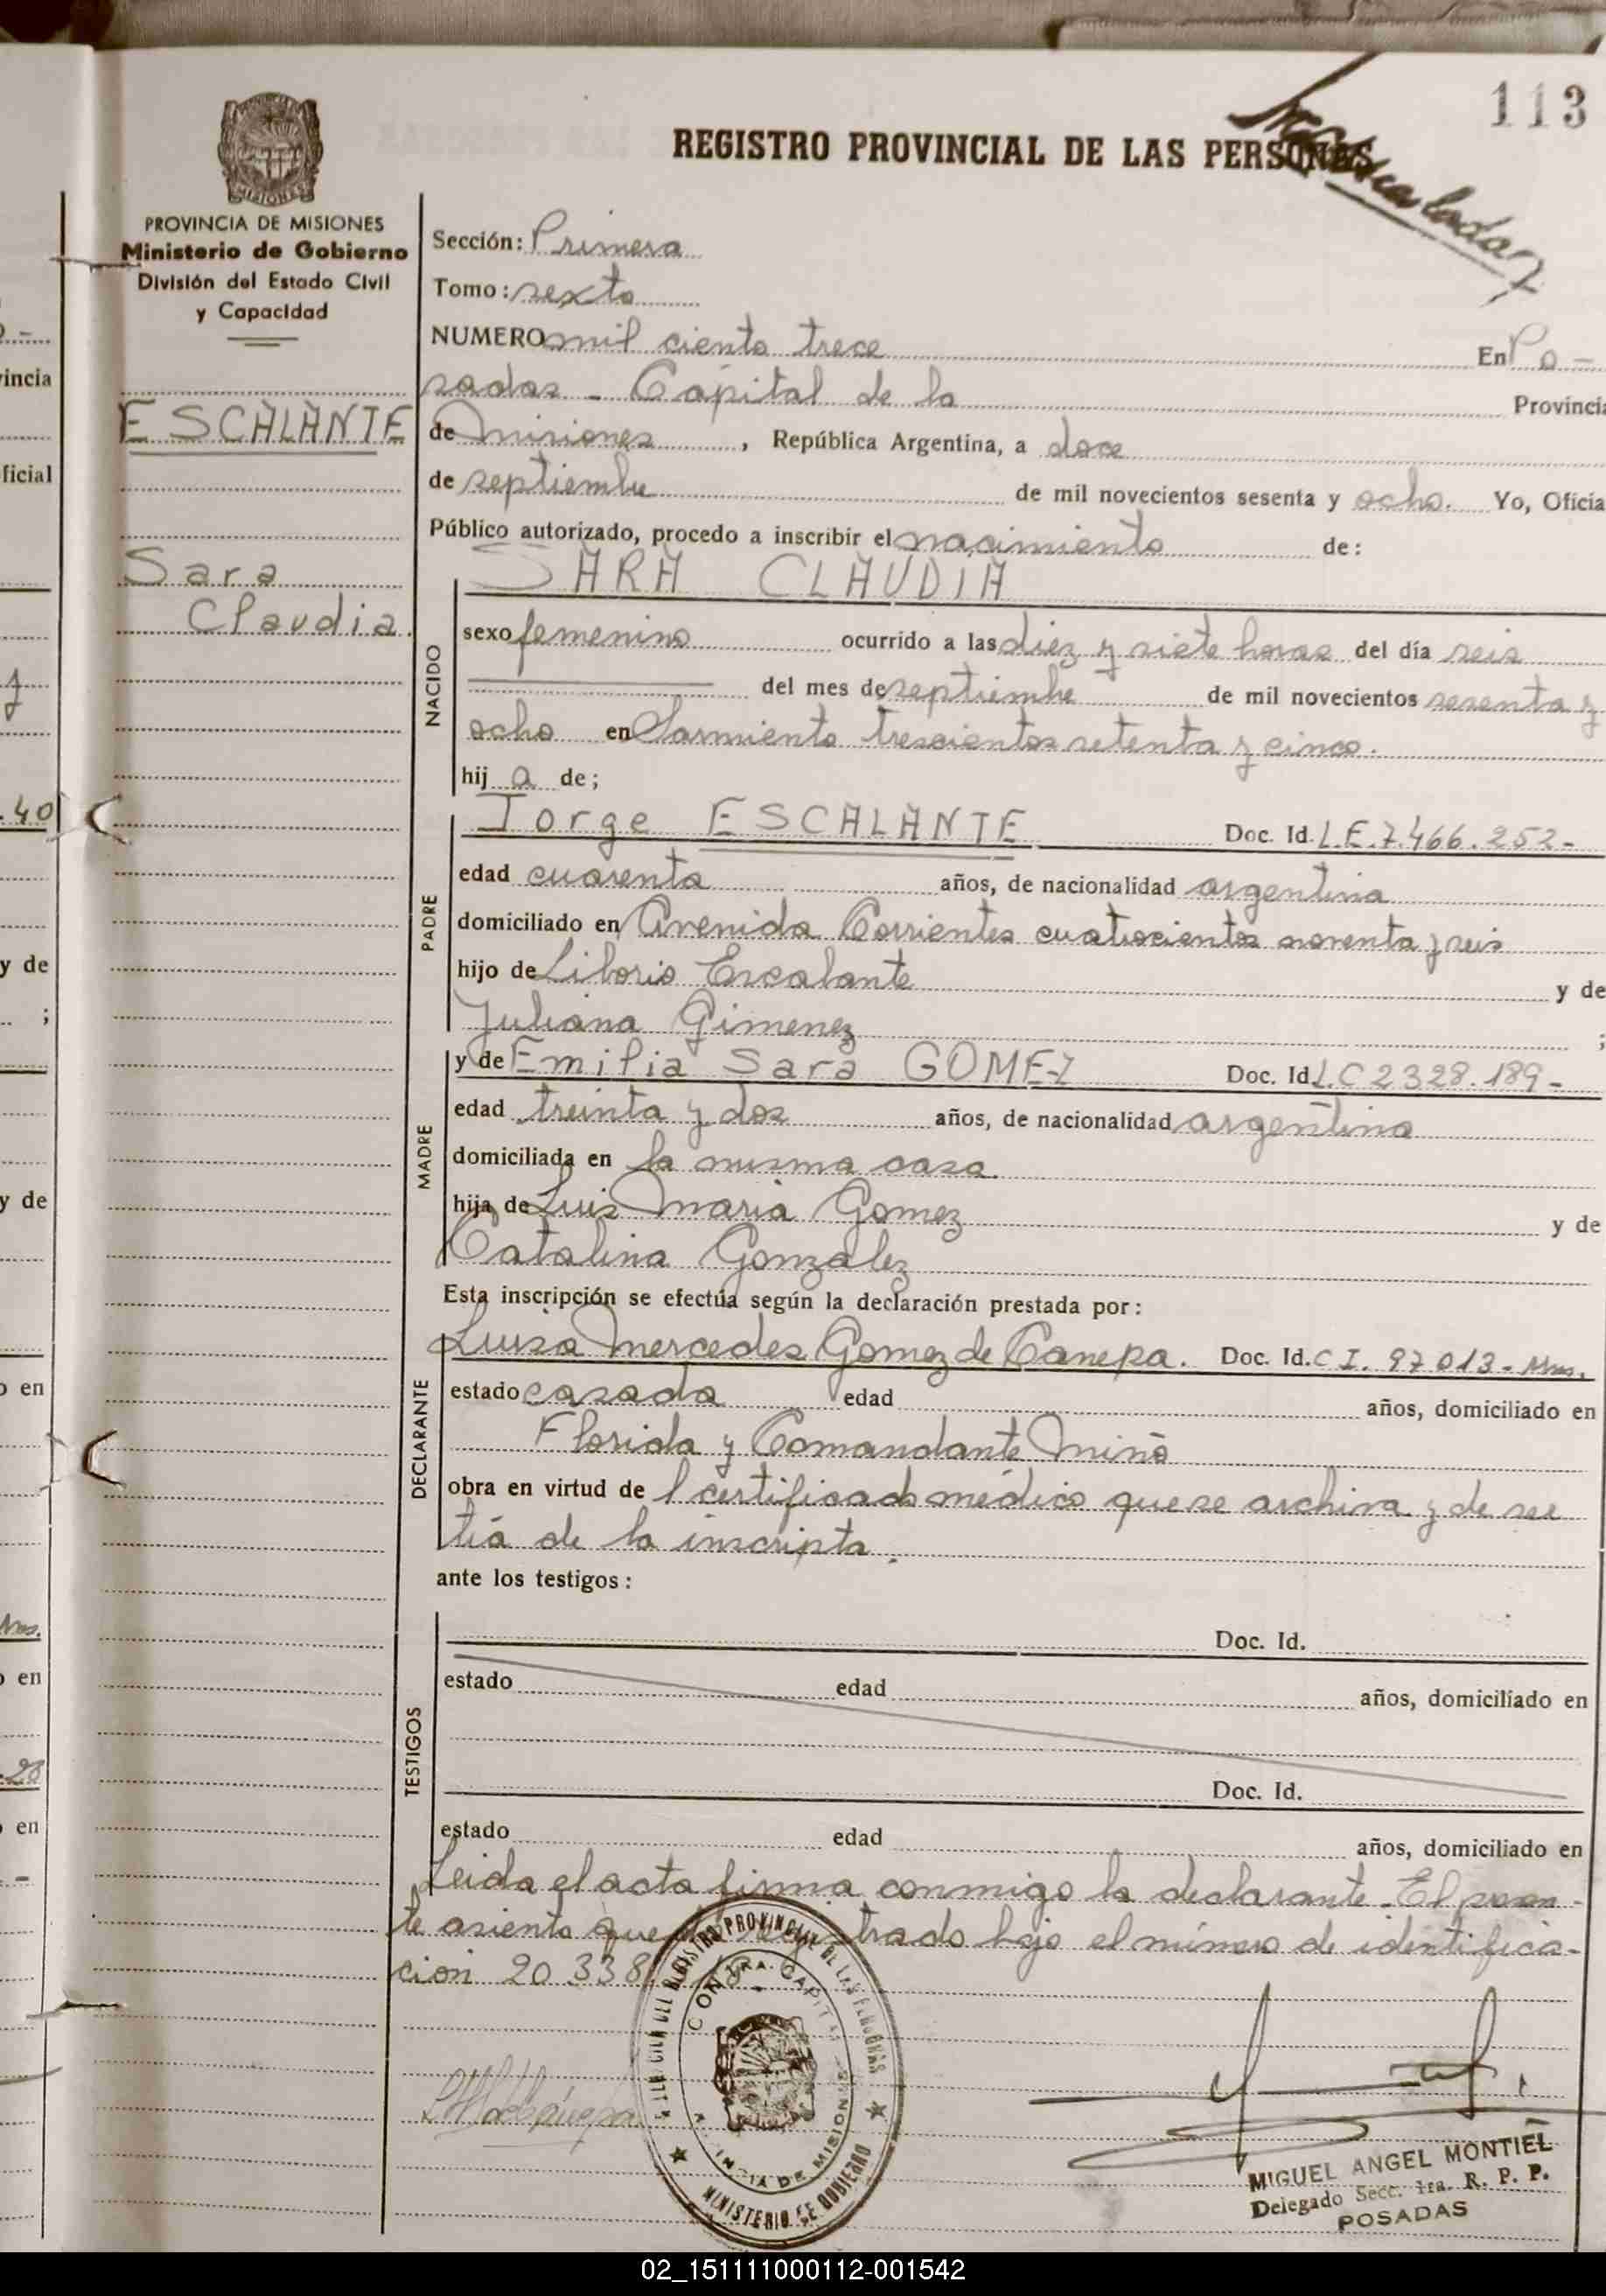 113
REGISTRO PROVINCIAL DE LAS PERSONAS
PROVINCIA DE MISIONES
Ministerio de Gobierno
División del Estado Civil
y Capacidad
ESCALANTE
Sara
Claudia
Sección: Primera
Tomo: sexto
NUMERO mil ciento trece En Po-
sadas - Capital de la Provincia
de Misiones, República Argentina, a doce
de septiembre de mil novecientos sesenta y ocho. Yo, Oficia
Público autorizado, procedo a inscribir el nacimiento de:
SARA CLAUDIA
NACIDO
sexo femenino ocurrido a las diez y siete horas del día seis
del mes de septiembre de mil novecientos sesenta y
ocho en Sarmiento trescientos setenta y cinco.
hij a de;
PADRE
Jorge ESCALANTE Doc. Id. L.E. 7.466.252-
edad cuarenta años, de nacionalidad argentina
domiciliado en Avenida Corrientes cuatrocientos noventa y seis
hijo de Liborio Escalante y de
Juliana Gimenez ;
MADRE
y de Emilia Sara GOMEZ Doc. Id. L.C 2328.189-
edad treinta y dos años, de nacionalidad argentina
domiciliada en la misma casa
hija de Luis Maria Gomez y de
Catalina Gonzalez
Esta inscripción se efectúa según la declaración prestada por:
DECLARANTE
Luisa Mercedes Gomez de Canepa. Doc. Id. C I. 97 013- Mns.
estado casada edad años, domiciliado en
Florida y Comandante Miño
obra en virtud de l certificado médico que se archiva y de ser
tía de la inscripta.
ante los testigos:
TESTIGOS
Doc. Id.
estado edad años, domiciliado en
Doc. Id.
estado edad años, domiciliado en
Leida el acta firma conmigo la declarante. El presen-
te asiento queda registrado bajo el número de identifica-
ción 20 338
MINISTERIO DE GOBIERNO
MIGUEL ANGEL MONTIEL
Delegado Secc. 1ra. R. P. P.
POSADAS
02_151111000112-001542